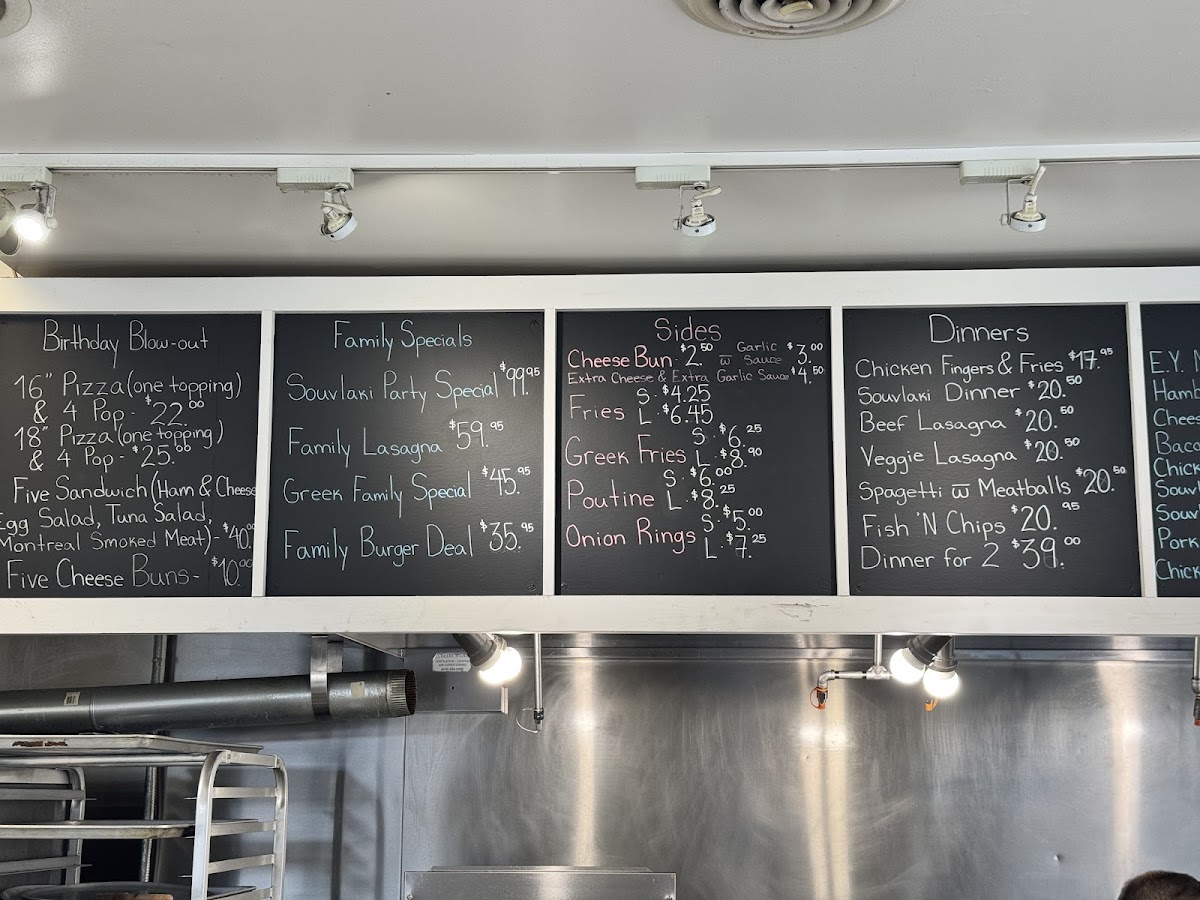 Birthday Blow-out
16" Pizza (one topping)
& 4 Pop - $22.00
18" Pizza (one topping)
& 4 Pop - $25.00
Five Sandwich (Ham & Cheese
Egg Salad, Tuna Salad,
Montreal Smoked Meat) - $40.00
Five Cheese Buns - $10.00
Family Specials
Souvlaki Party Special $99.95
Family Lasagna $59.95
Greek Family Special $45.95
Family Burger Deal $35.95
Sides
Cheese Bun - $2.50 w̅ Garlic Sauce $3.00
Extra Cheese & Extra Garlic Sauce $4.50
Fries S. $4.25
L. $6.45
Greek Fries S. $6.25
L. $8.90
Poutine S. $6.00
L. $8.25
Onion Rings S. $5.00
L. $7.25
Dinners
Chicken Fingers & Fries $17.95
Souvlaki Dinner $20.50
Beef Lasagna $20.50
Veggie Lasagna $20.50
Spagetti w̅ Meatballs $20.50
Fish 'N Chips $20.95
Dinner for 2 $39.00
E.Y.
Hamb
Chees
Baco
Chick
Souvl
Souv
Pork
Chick